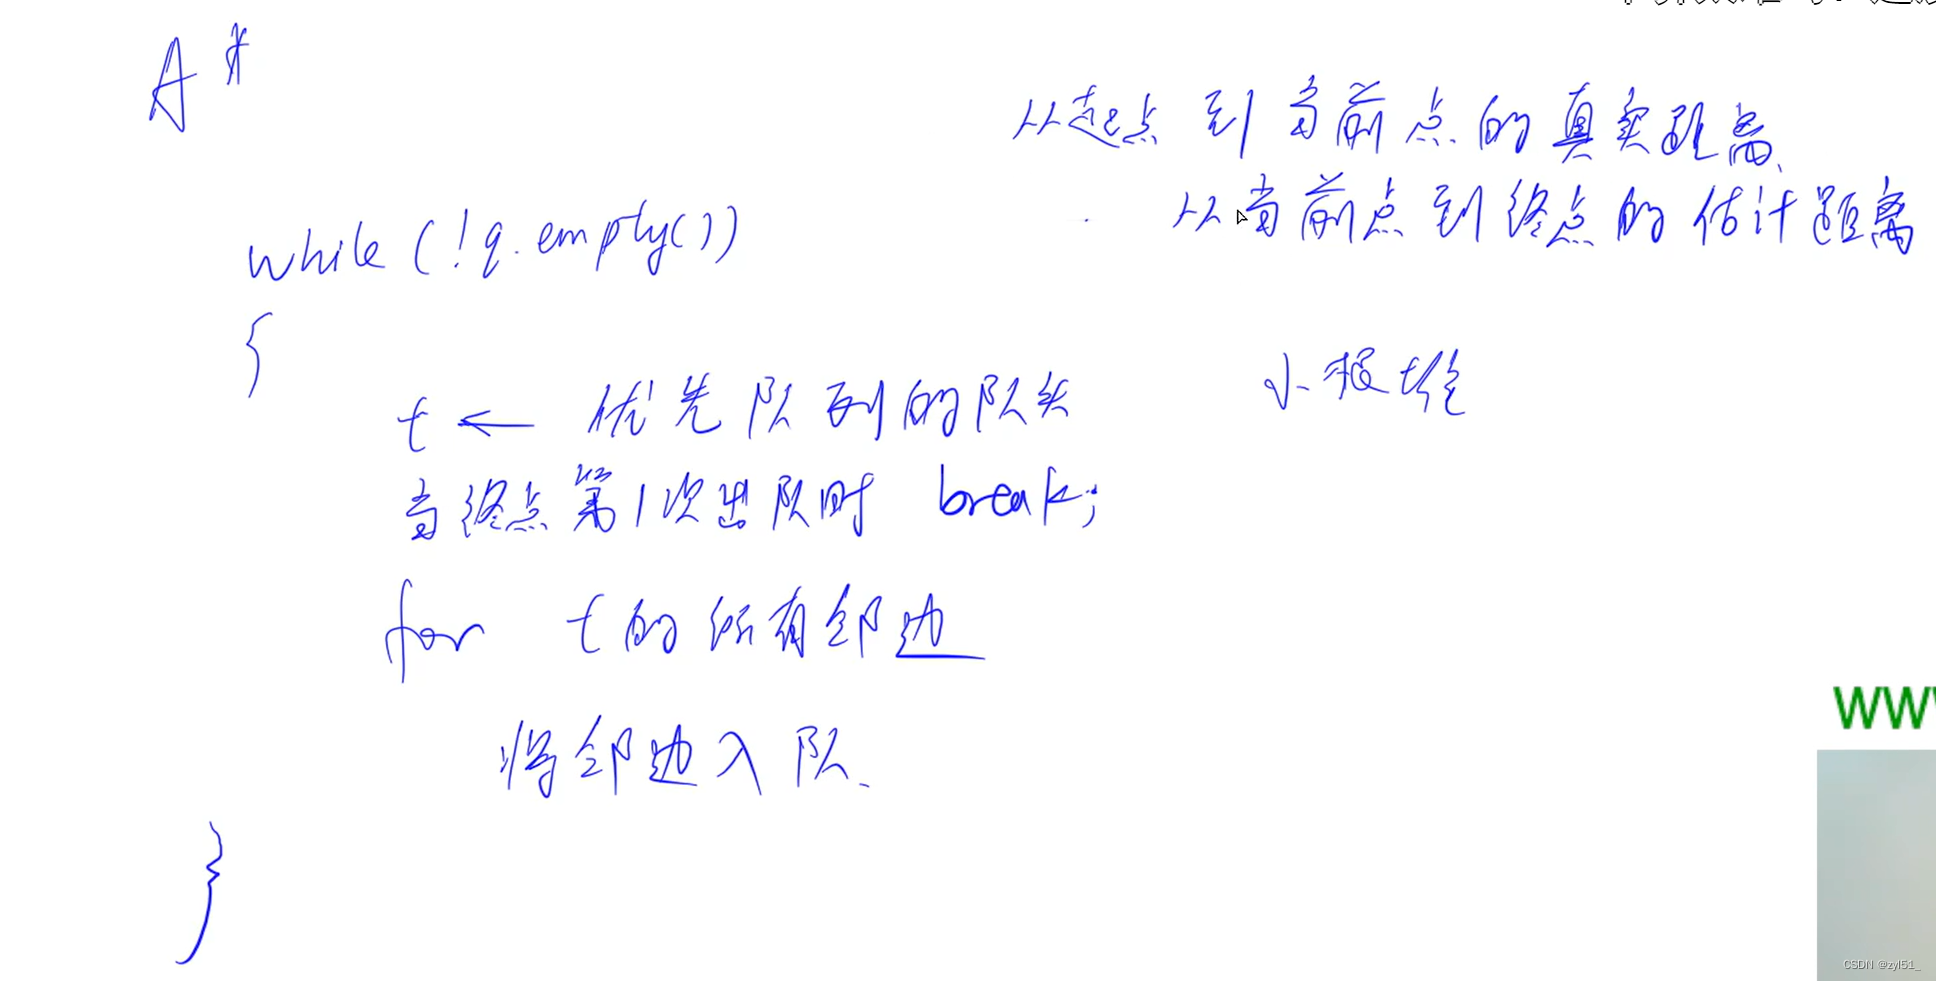 A*
从起点到当前点的真实距离
从当前点到终点的估计距离
while (!q.empty())
{
小根堆
t ← 优先队列的队头
当终点第1次出队时 break;
for t的所有邻边
将邻边入队.
}
CSDN @zyl51_